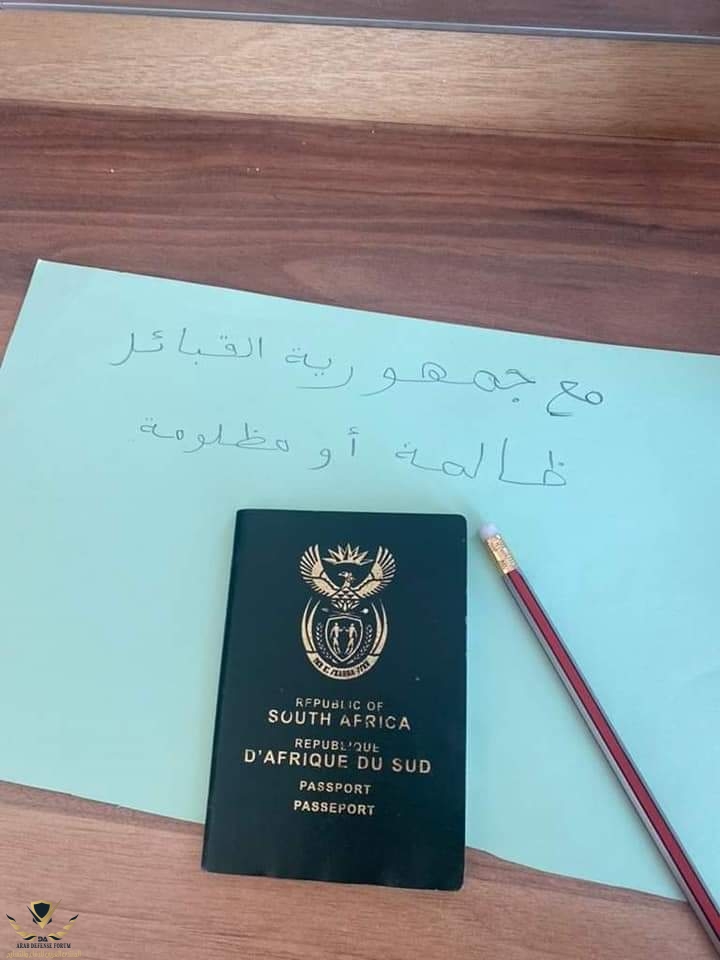 مع جمهورية القبائل
ظالمة أو مظلومة
REPUBLIC OF
SOUTH AFRICA
REPUBLIQUE
D'AFRIQUE DU SUD
PASSPORT
PASSEPORT
ARAB DEFENSE FORUM